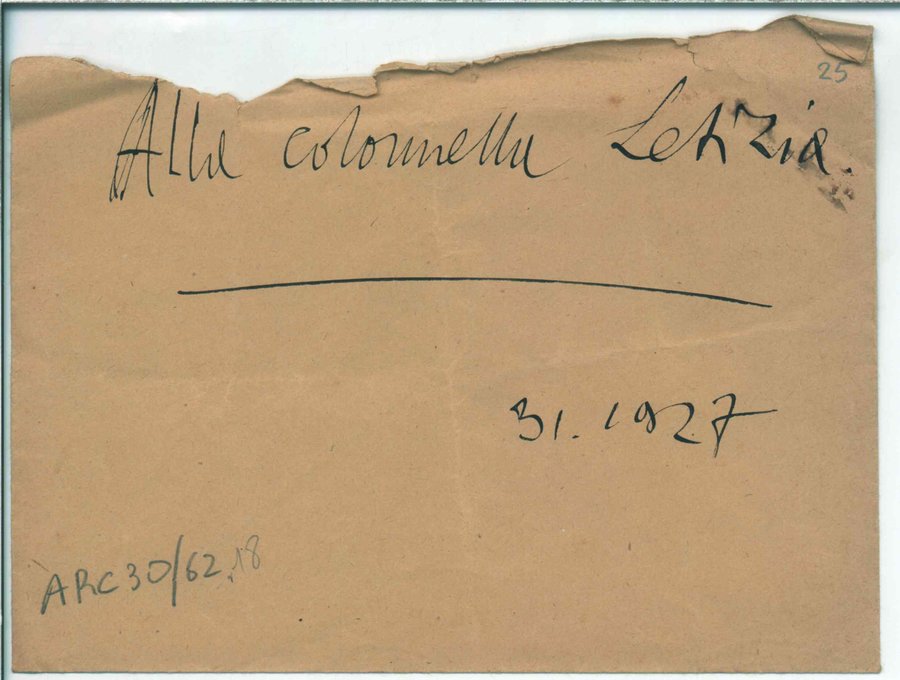 25
Alla colonnella Letizia.
31.1927
ARC30/62.18